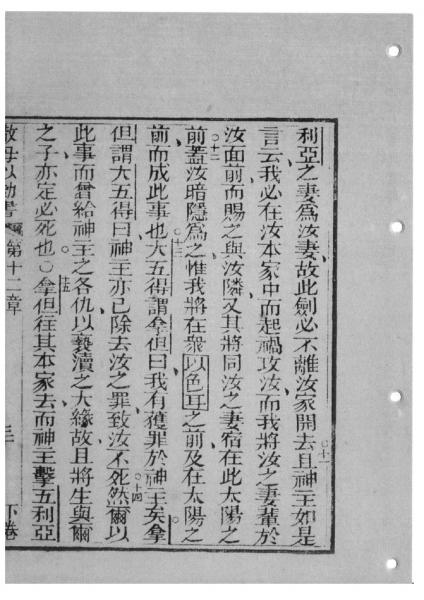 利亞之妻爲汝妻故此劍必不離汝家開去且神主如是
十一
言云我必在汝本家中而起禍攻汝而我將汝之妻輩於
汝面前而賜之與汝隣又其將同汝之妻宿在此太陽之
十二
前蓋汝暗隱爲之惟我將在衆以色耳之前及在太陽之
十三
前而成此事也大五得謂拿但曰我有獲罪於神主矣拿
但謂大五得曰神主亦已除去汝之罪致汝不死然爾以
十四
此事而曾給神主之各仇以褻瀆之大緣故且將生與爾
十五
之子亦定必死也○拿但往其本家去而神主擊五利亞
第十二章
三
下卷